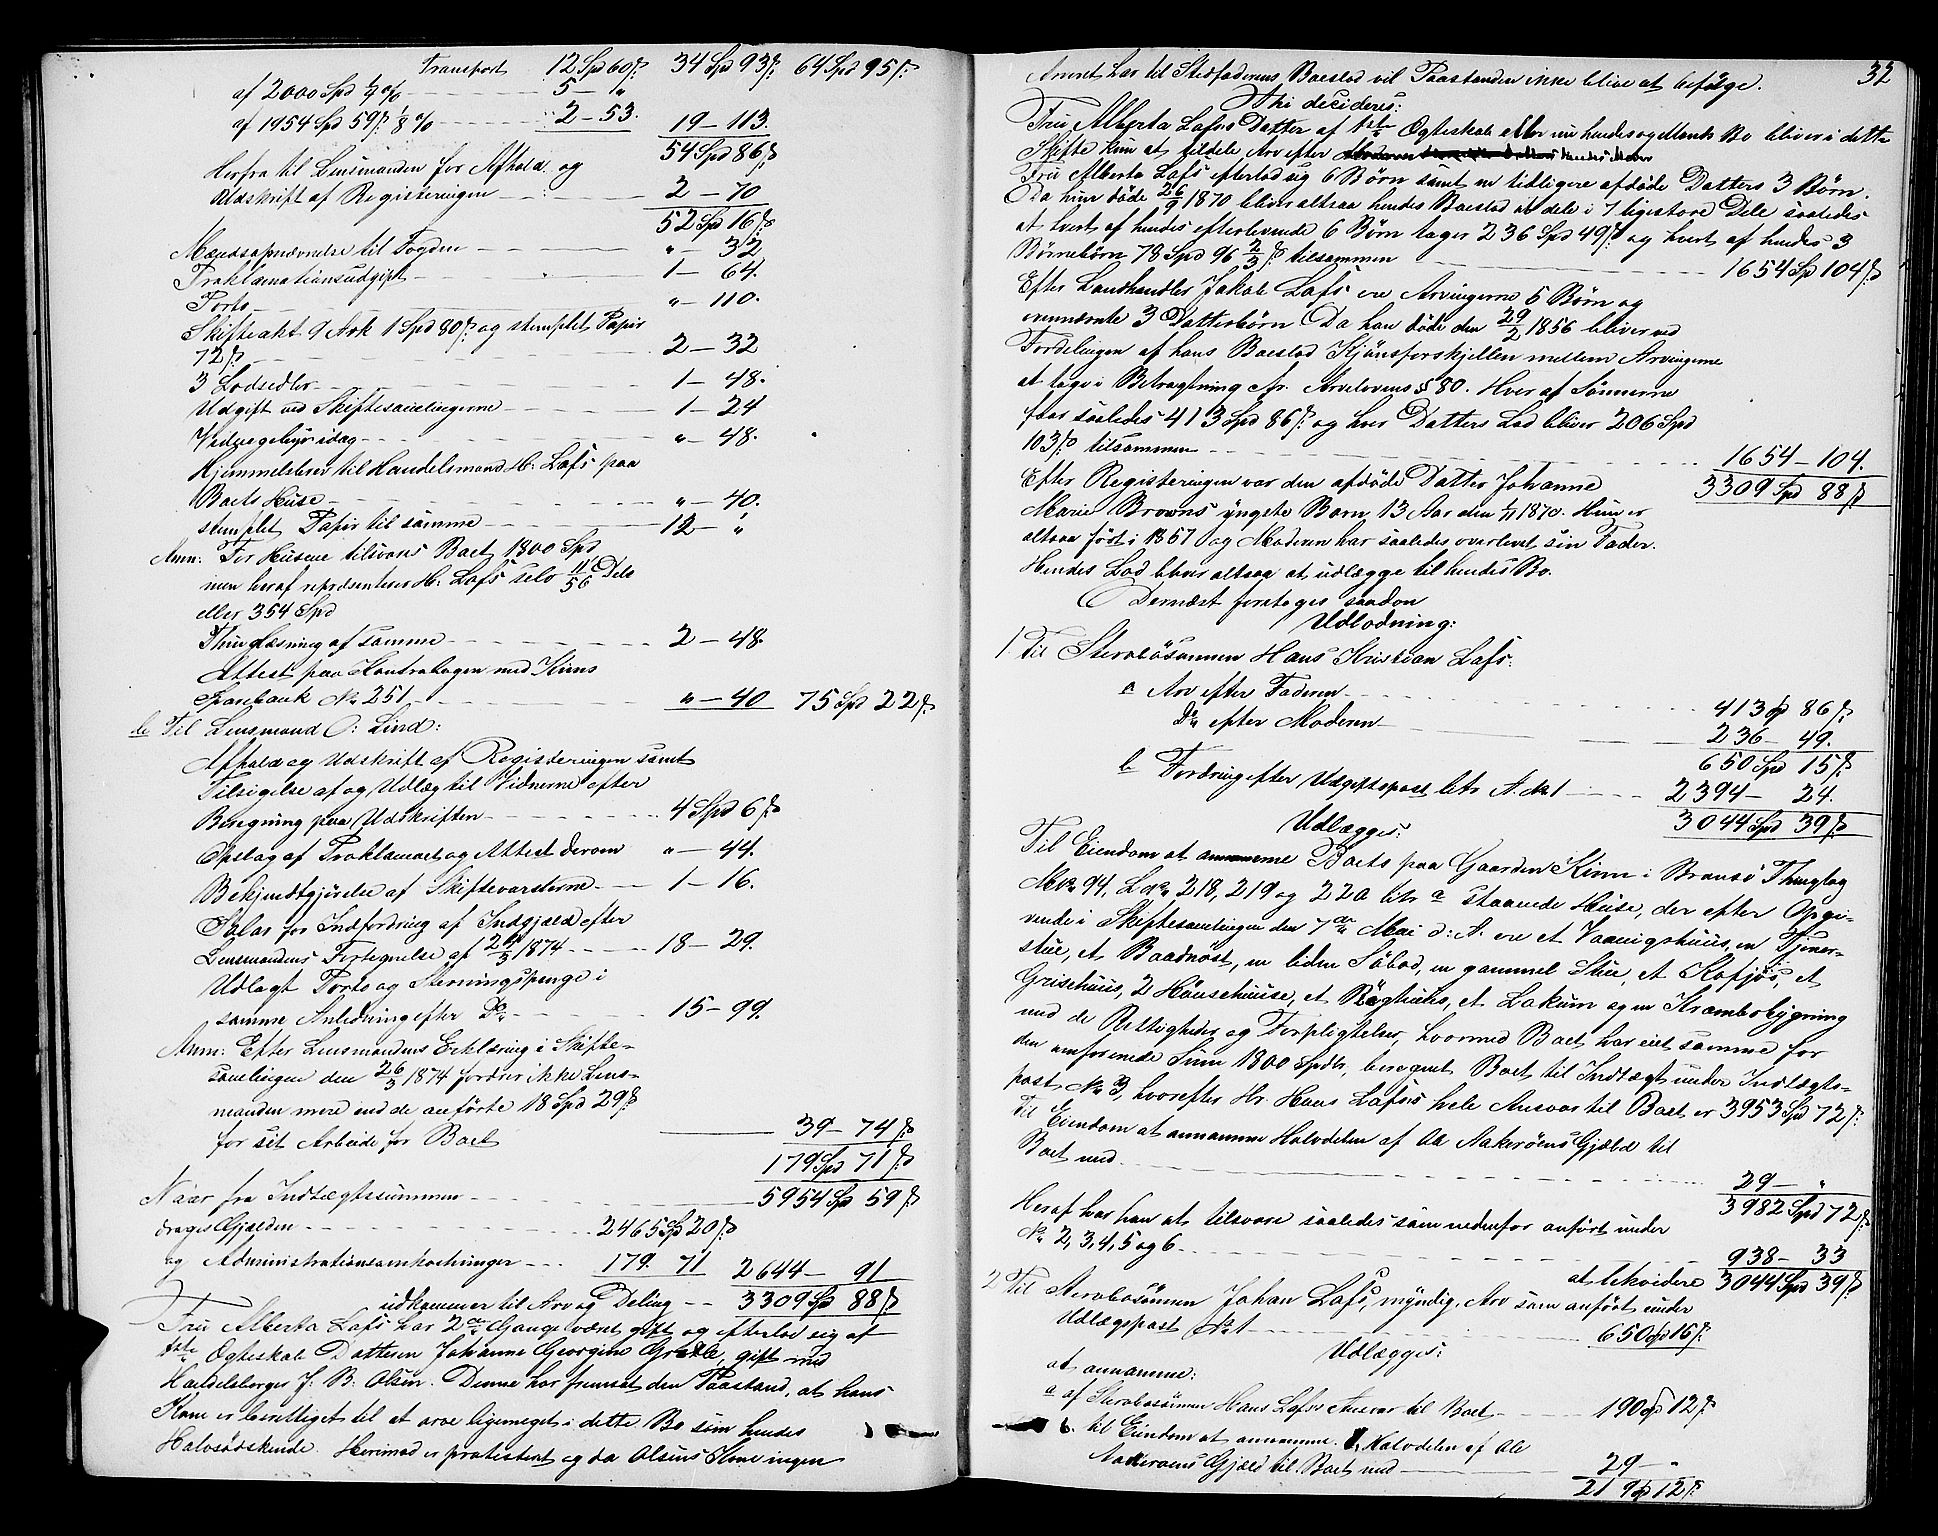 Transport 12 Spd 60 ß. 34 Spd 93 ß. 64 Spd 95 ß.
af 2000 Spd ¼ % 5 - "
af 1954 Spd 59 ß. ⅛ % 2 - 53. 19 - 113.
54 Spd 86 ß
Herfra til Lensmanden for Afhold og
Udskrift af Registeringen 2 - 70
52 Spd 16 ß
Mandsopnævnelse til Fogden " - 32
Proklamationsudgift 1 - 64.
Porto " - 110.
Skifteakt 9 Ark 1 Spd 80 ß. og stemplet Papir
72 ß 2 - 32
3 Lodsedler 1 - 48.
Udgift ved Skiftesamlingerne 1 - 24
idag " - 48.
Hjemmelsbrev til Handelsmand H. Lafs paa
Boets Huse " - 40.
stemplet Papir til samme 12 - "
Anm: For Husene tilsvares Boet 1800 Spd
men heraf repræsenterer H. Lafs selv 11/56 Dele
eller 354 Spd
Thinglæsning af samme 2 - 48.
Attest paa Kontrabogen med Kinns
Sparebank No 251 " - 40 75 Spd 22 ß.
b Til Lensmand O: Lind:
Afhold og Udskrift af Registeringen samt
Tilsigelse af og Udlæg til Vidnerne efter
Beregning paa Udskriften 4 Spd 6 ß
Opslag af Proklamaet og Attest derom " - 44.
Bekjendtgjørelse af Skiftevarslerne 1 - 16.
Salær for Indfordring af Indgjæld efter
Lensmandens Fortegnelse af 24/3 1874 18 - 29.
Udlagt Porto og Stevningspenge i
samme Anledning efter Do 15 - 99.
Anm: Efter Lensmandens Erklæring i Skifte-
samlingen den 26/3 1874 fordrer ikke Lens-
manden mere end de anførte 18 Spd 29 ß
for sit Arbeide for Boet 39 - 74 ß
179 Spd 71 ß
Naar fra Indtægtssummen 5954 Spd 59 ß
drages Gjælden 2465 Spd 20 ß
og Administrationsomkostninger 179. 71 2644 - 91
udkommer til Arv og Deling 3309 Spd 88 ß
Fru Alberta Lafs har 2de Gange været gift og efterlod sig af
1ste Ægteskab Datteren Johanne Georgine gift med
Handelsborger J. B. Olsen. Denne har fremsat den Paastand, at hans
Kone er berettiget til at arve ligemeget i dette Bo som hendes
Halvsødskende. Herimod er protesteret og da Olsens Kone ingen
32
Arveret har til Stedfaderens Boeslod vil Paastanden ikke blive at befølge.
Thi decideres:
Fru Alberta Lafs's Datter af 1ste Ægteskab eller nu hendes og Mands Bo bliver i dette
Skifte kun at tildele Arv efter hendes Moder
Fru Alberta Lafs efterlod sig 6 Børn samt en tidligere afdøde Datters 3 Børn.
Da hun døde 26/9 1870 bliver altsaa hendes Boeslod at dele i 7 ligestore Dele saaledes
at hvert af hendes efterlevende 6 Børn tager 236 Spd 49 ß og hvert af hendes 3
Børnebørn 78 Spd 96 2/3 ß tilsammen 1654 Spd 104 ß
Efter Landhandler Jakob Lafs ere Arvingerne 5 Børn og
ovennævnte 3 Datterbørn. Da han døde den 29/2 1856 bliver ved
Fordelingen af hans Boeslod Kjønsforskjellen mellem Arvingerne
at tage i Betragtning cfr. Arvelovens § 80. Hver af Sønnerne
faar saaledes 413 Spd 86 ß. og hver Datters Lod bliver 206 Spd
103 ß tilsammen 1654 - 104.
3309 Spd 88 ß
Efter Registeringen var den afdøde Datter Johanne
Marie Browns yngste Barn 13 Aar den 1870. Hun er
altsaa født i 1857 og Moderen har saaledes overlevet sin Fader.
Hendes Lod bliver altsaa at udlægge til hendes Bo.
Dernæst foretages saadan
Udlodning:
1. Til Stervbosønnen Hans Kristian Lafs:
a Arv efter Faderen 413 Spd 86 ß
Do efter Moderen 236 - 49.
650 Spd 15 ß
b Fordring efter Udgiftspost litr A. No 1 2394 - 24.
3044 Spd 39 ß
Udlægges:
Til Eiendom at annamme Boets paa Gaarden Kinn i Bransø Thinglag
MNo 94, LNo 218, 219 og 220 litr a staaende Huse, der efter Opgi-
vende i Skiftesamlingen den 7de Mai d: A. ere et Vaaningshuus, en Tjener-
stue, et Baadnøst, en liden Søbod, en gammel Stue, et Kofjøs, et
Grisehuus, 2 Hønsehuuse, et Røghuus, et Lokum og en Krambobygning
med de Rettigheder og Forpligtelser, hvormed Boet har eiet samme for
den anførende Sum 1800 Spdr, beregnet Boet til Indtægt under Indtægts-
post No 3, hvorefter Hr. Hans Lafs's hele Ansvar til Boet er 3953 Spd 72 ß.
Til Eiendom at annamme Halvdelen af Ole Aakerøens Gjæld til
Boet med 29 - "
3982 Spd 72 ß.
Heraf har han at tilsvare saaledes som nedenfor anført under
No 2, 3, 4, 5 og 6 938 - 33
at likvidere 3044 Spd 39 ß
2 Til Stervbosønnen Johan Lafs, myndig, Arv som anført under
Udlægspost No 1 650 Spd 15 ß.
Udlægges:
at annamme:
a af Stervbosønnen Hans Lafs's Ansvar til Boet 190 Spd 12 ß
b. til Eiendom at annamme Halvdelen af Ole
Aakerøens Gjæld til Boet med 29 - "
219 Spd 12 ß.